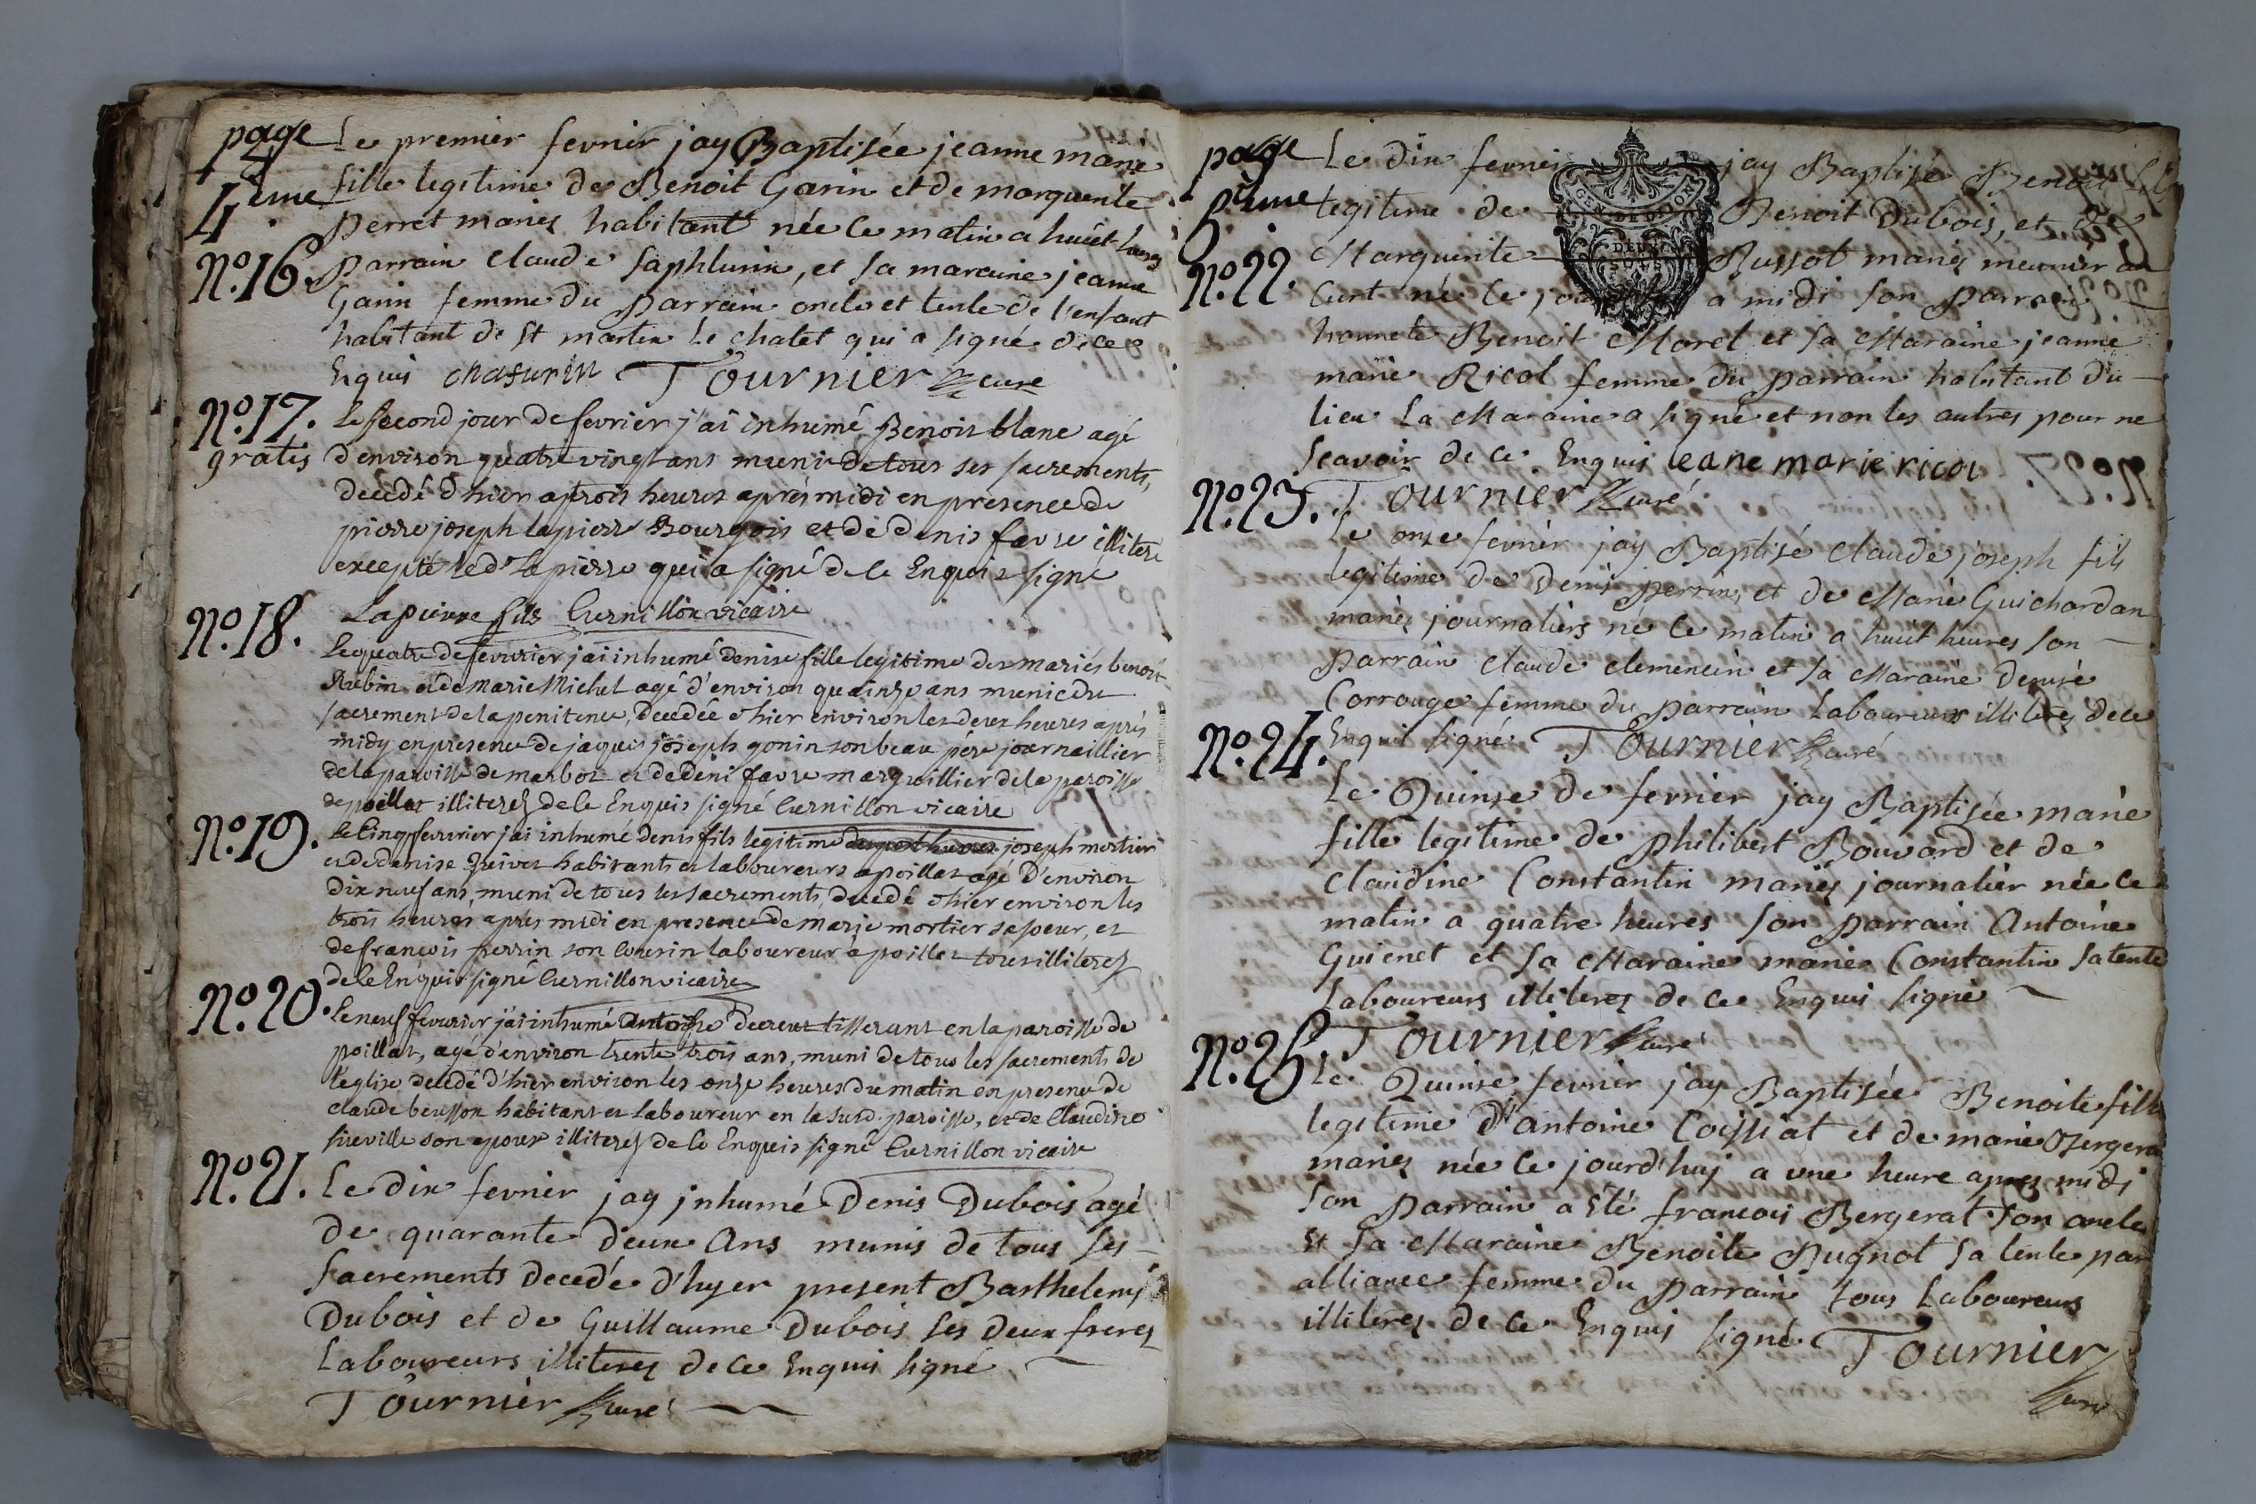 page
4 eme
Le premier fevrier jay Baptisée jeanne marie
fille legitime de Benoit Garin et de marguerite
perret mariés habitant née ce matin a huict heures
No. 16.
parrain claude saphlurin, et sa maraine jeanne
Garin femme du parrain oncle et tente de l'enfant
habitant de St martin le chatel qui a signé de ce
Enquis chafurin Tournier curé
No. 17.
gratis
Le second jour de fevrier j'ai inhumé Benoit blanc agé
d'environ quatre vingt ans muni de tous ses sacrements,
decedé d'hier a trois heures aprés midi en presence de
pierre joseph lapierre Bourgois et de denis favre illitere
excepté led. lapierre qui a signé de ce Enquis signé
Lapierre fils Curnillon vicaire
No. 18.
Le quatre de fevrier j'ai inhumé denise fille legitime des mariés benoit
Rubin et de marie Michel agé d'environ quainze ans munie du
sacrement de la penitence, decedée d'hier environ les deux heures aprés
midy en presence de jaques joseph gonin son beau pére journaillier
de la paroisse de marboz et de deni favre marguillier de la paroisse
de poillat illiterez de ce Enquis signé Curnillon vicaire
No. 19.
Le Cinq fevrier j'ai inhumé denis fils legitime joseph mortier
et de denise Quivet habitants et laboureurs a poillat agé D'environ
dix neuf ans, muni de tous les sacrements, decedé d'hier environ les
trois heures aprés midi en presence de marie mortier sa soeur, et
de françois perrin son Cousin laboureur à poillat tous illiterez
de ce Enquis signé Curnillon vicaire
No. 20.
Le neuf fevrier j'ai inhumé antoine decreut tisserant en la paroisse de
poillat, agé d'environ trente trois ans, muni de tous les sacrements de
l'eglise decedé d'hier environ les onze heures du matin en presence de
claude beusson habitant et laboureur en la susd. paroisse, et de Claudine
fireville son epouse illiterez de ce Enquis signé Curnillon vicaire
No. 21.
Le dix fevrier jay jnhumé Denis Dubois agé
de quarante deux Ans munis de tous ses
sacrements decedé d'hyer present Barthelemi
Dubois et de Guillaume Dubois ses deux freres
Laboureurs illiterez de ce Enquis signé
Tournier curé
page
5 eme
Le dix fevrier jay Baptisé Benoit fils
legitime de Benoit Dubois, et de
GEN. DE DIJON
DEUX
SOLS
No. 22.
Marguerite Bussot mariés meunier au
Curt né ce jour a midi son parrain
honnete Benoit Morel et sa Maraine jeanne
marie Ricol femme du parrain habitant du
lieu La Maraine a signé et non les autres pour ne
scavoir de ce Enquis jeane marie ricol
No. 23.
Tournier curé
Le onze fevrier jay Baptisé claude joseph fils
legitime de Denis perrin et de Marie Guichardan
mariés journaliers né ce matin a huit heures son
parrain claude clemencin et sa Maraine Denise
Corrouge femme du parrain Laboureurs illiterez de ce
No. 24.
Enquis signé Tournier curé
Le Quinze de fevrier jay Baptisée marie
fille legitime de philibert Bouvard et de
claudine Constantin mariés journalier née ce
matin a quatre heures son parrain Antoine
Guienet et sa Maraine marie Constantin sa tente
Laboureurs illiterez de ce Enquis signé
No. 25.
Tournier curé
Le Quinze fevrier jay Baptisée Benoite fille
legitime d'Antoine Coissiat et de marie Bergera
mariés née ce jourd'huy a une heure apres midi
son parrain a été francois Bergerat son oncle
et sa Maraine Benoite Pugnot sa tente par
alliance femme du parrain tous Laboureurs
illiterez de ce Enquis signé Tournier
curé